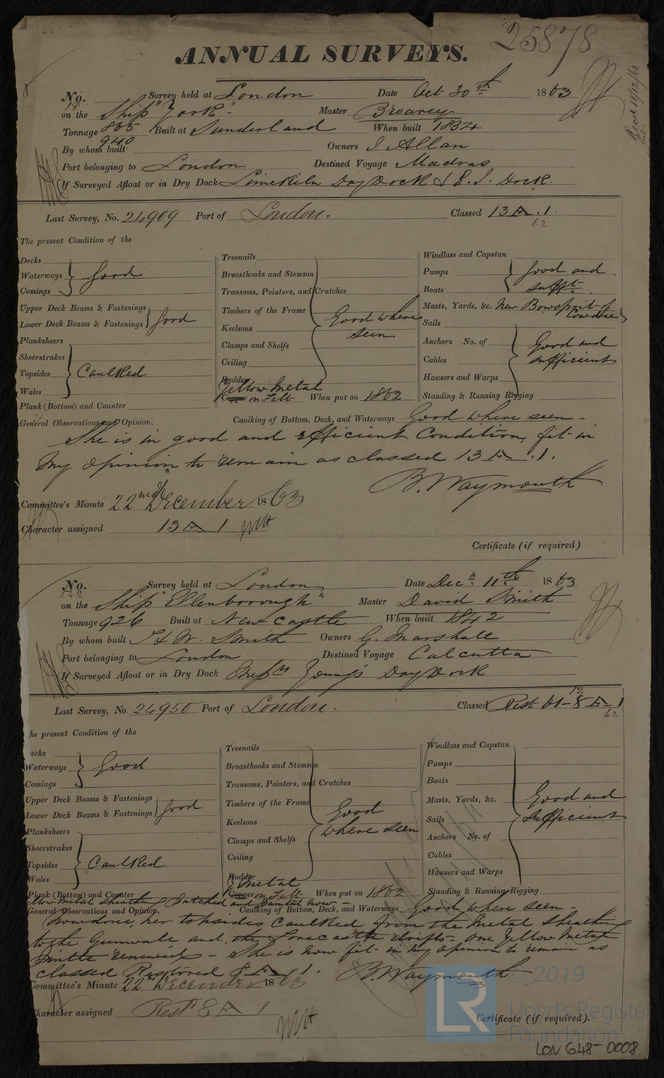 25878
ANNUAL SURVEYS.
No. Survey held at London Date Oct 30th 1863
on the Ship "York" Master
Tonnage 865 Built at Sunderland When built 1834
940
By whom built Owners J Allan
Port belonging to London Destined Voyage Madras
If Surveyed Afloat or in Dry Dock Limekiln Dry Dock & E. I. Dock.
Last Survey, No. 24909 Port of London. Classed 13 A .1.
62
The present Condition of the
Decks
Waterways
Comings
Good
Upper Deck Beams & Fastenings
Lower Deck Beams & Fastenings
Good
Planksheers
Sheerstrakes
Topsides
Wales
Caulked
Plank (Bottom) and Counter
Treenails
Breasthooks and Stemson
Transoms, Pointers, and Crutches
Timbers of the Frame
Keelsons
Clamps and Shelfs
Ceiling
Rudder
Good where seen
Yellow Metal
Copper on Felt When put on 1862
Windlass and Capstan
Pumps
Boats
Good and sufft.
Masts, Yards, &c. New Bowsprit &
Sails
Anchors No. of
Cables
Hawsers and Warps
Standing & Running Rigging
Good and sufficient
General Observations and Opinion. Caulking of Bottom, Deck, and Waterways Good where seen -
She is in good and efficient Condition, fit in
my opinion to remain as classed 13 A .1.
B. Waymouth
Committee's Minute 22nd December 1863
Character assigned 13 A 1
Certificate (if required)
No. Survey held at London Date Decr 11th 1863
on the Ship "Ellenborough" Master David Smith
Tonnage 926 Built at New Castle When built 1842
By whom built T & W. Smith Owners G. Marshall
Port belonging to London Destined Voyage Calcutta
If Surveyed Afloat or in Dry Dock Messrs Youngs Dry Dock
Last Survey, No. 24950 Port of London. Classed Rest 61-8 A 1
62
The present Condition of the
Decks
Waterways
Comings
Good
Upper Deck Beams & Fastenings
Lower Deck Beams & Fastenings
Good
Planksheers
Sheerstrakes
Topsides
Wales
Caulked
Plank (Bottom) and Counter
Treenails
Breasthooks and Stemson
Transoms, Pointers, and Crutches
Timbers of the Frame
Keelsons
Clamps and Shelfs
Ceiling
Rudder
Good where seen
Y Metal
Copper on Felt When put on 1862
Windlass and Capstan
Pumps
Boats
Masts, Yards, &c.
Sails
Anchors No. of
Cables
Hawsers and Warps
Standing & Running Rigging
Good and sufficient
Yellow Metal sheathing Patched and
General Observations and Opinion. Caulking of Bottom, Deck, and Waterways Good where seen -
her topsides caulked from the Metal Sheath
to the Gunwale and the Forecastle - one Yellow Metal
Pintle renewed - She is now fit in my opinion to remain as
classed Restored 8 A 1. B. Waymouth
Committee's Minute 22nd December 1863
Character assigned Rest 8 A 1
Certificate (if required).
LR © 2019
Lloyd's Register
Foundation
LON 648-0008